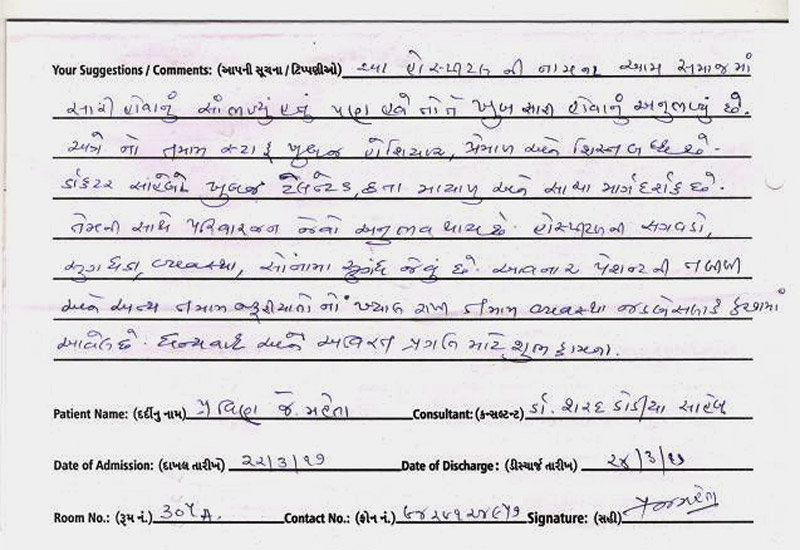 Your Suggestions / Comments: (આપની સૂચના / ટિપ્પણીઓ) આ હોસ્પીટલ ની નામના આમ સમાજમાં
સારી હોવાનું સાંભળ્યું હતું પણ હવે તો તે ખુબ સારી હોવાનું અનુભવ્યું છે.
અત્રે નો તમામ સ્ટાફ ખુબજ હોશિયાર, પ્રેમાળ અને શિસ્તબધ્ધ છે.
ડોકટર સાહેબો ખુબજ ટેલેન્ટેડ, છતા માયાળુ અને સાચા માર્ગદર્શક છે.
તેમની સાથે પરિવારજન જેવો અનુભવ થાય છે. હોસ્પીટલની સગવડો,
સુઘડતા, વ્યવસ્થા, સોનામા સુગંધ જેવું છે. આવનાર પેશન્ટ ની તબીબી
અને અન્ય તમામ જરૂરીયાતો નો ખ્યાલ રાખી તમામ વ્યવસ્થા જડબેસલાક કરવામાં
આવેલ છે. ધન્યવાદ અને અવિરત પ્રગતિ માટે શુભકામના.
Patient Name: (દર્દીનુ નામ) પ્રવિણ જે. મહેતા Consultant: (કન્સલ્ટન્ટ) ડો. શરદ ડોડીયા સાહેબ
Date of Admission: (દાખલ તારીખ) ૨૨/૩/૧૭ Date of Discharge: (ડીસ્ચાર્જ તારીખ) ૨૪/૩/૧૭
Room No.: (રૂમ નં.) Contact No.: (ફોન નં.) Signature: (સહી)